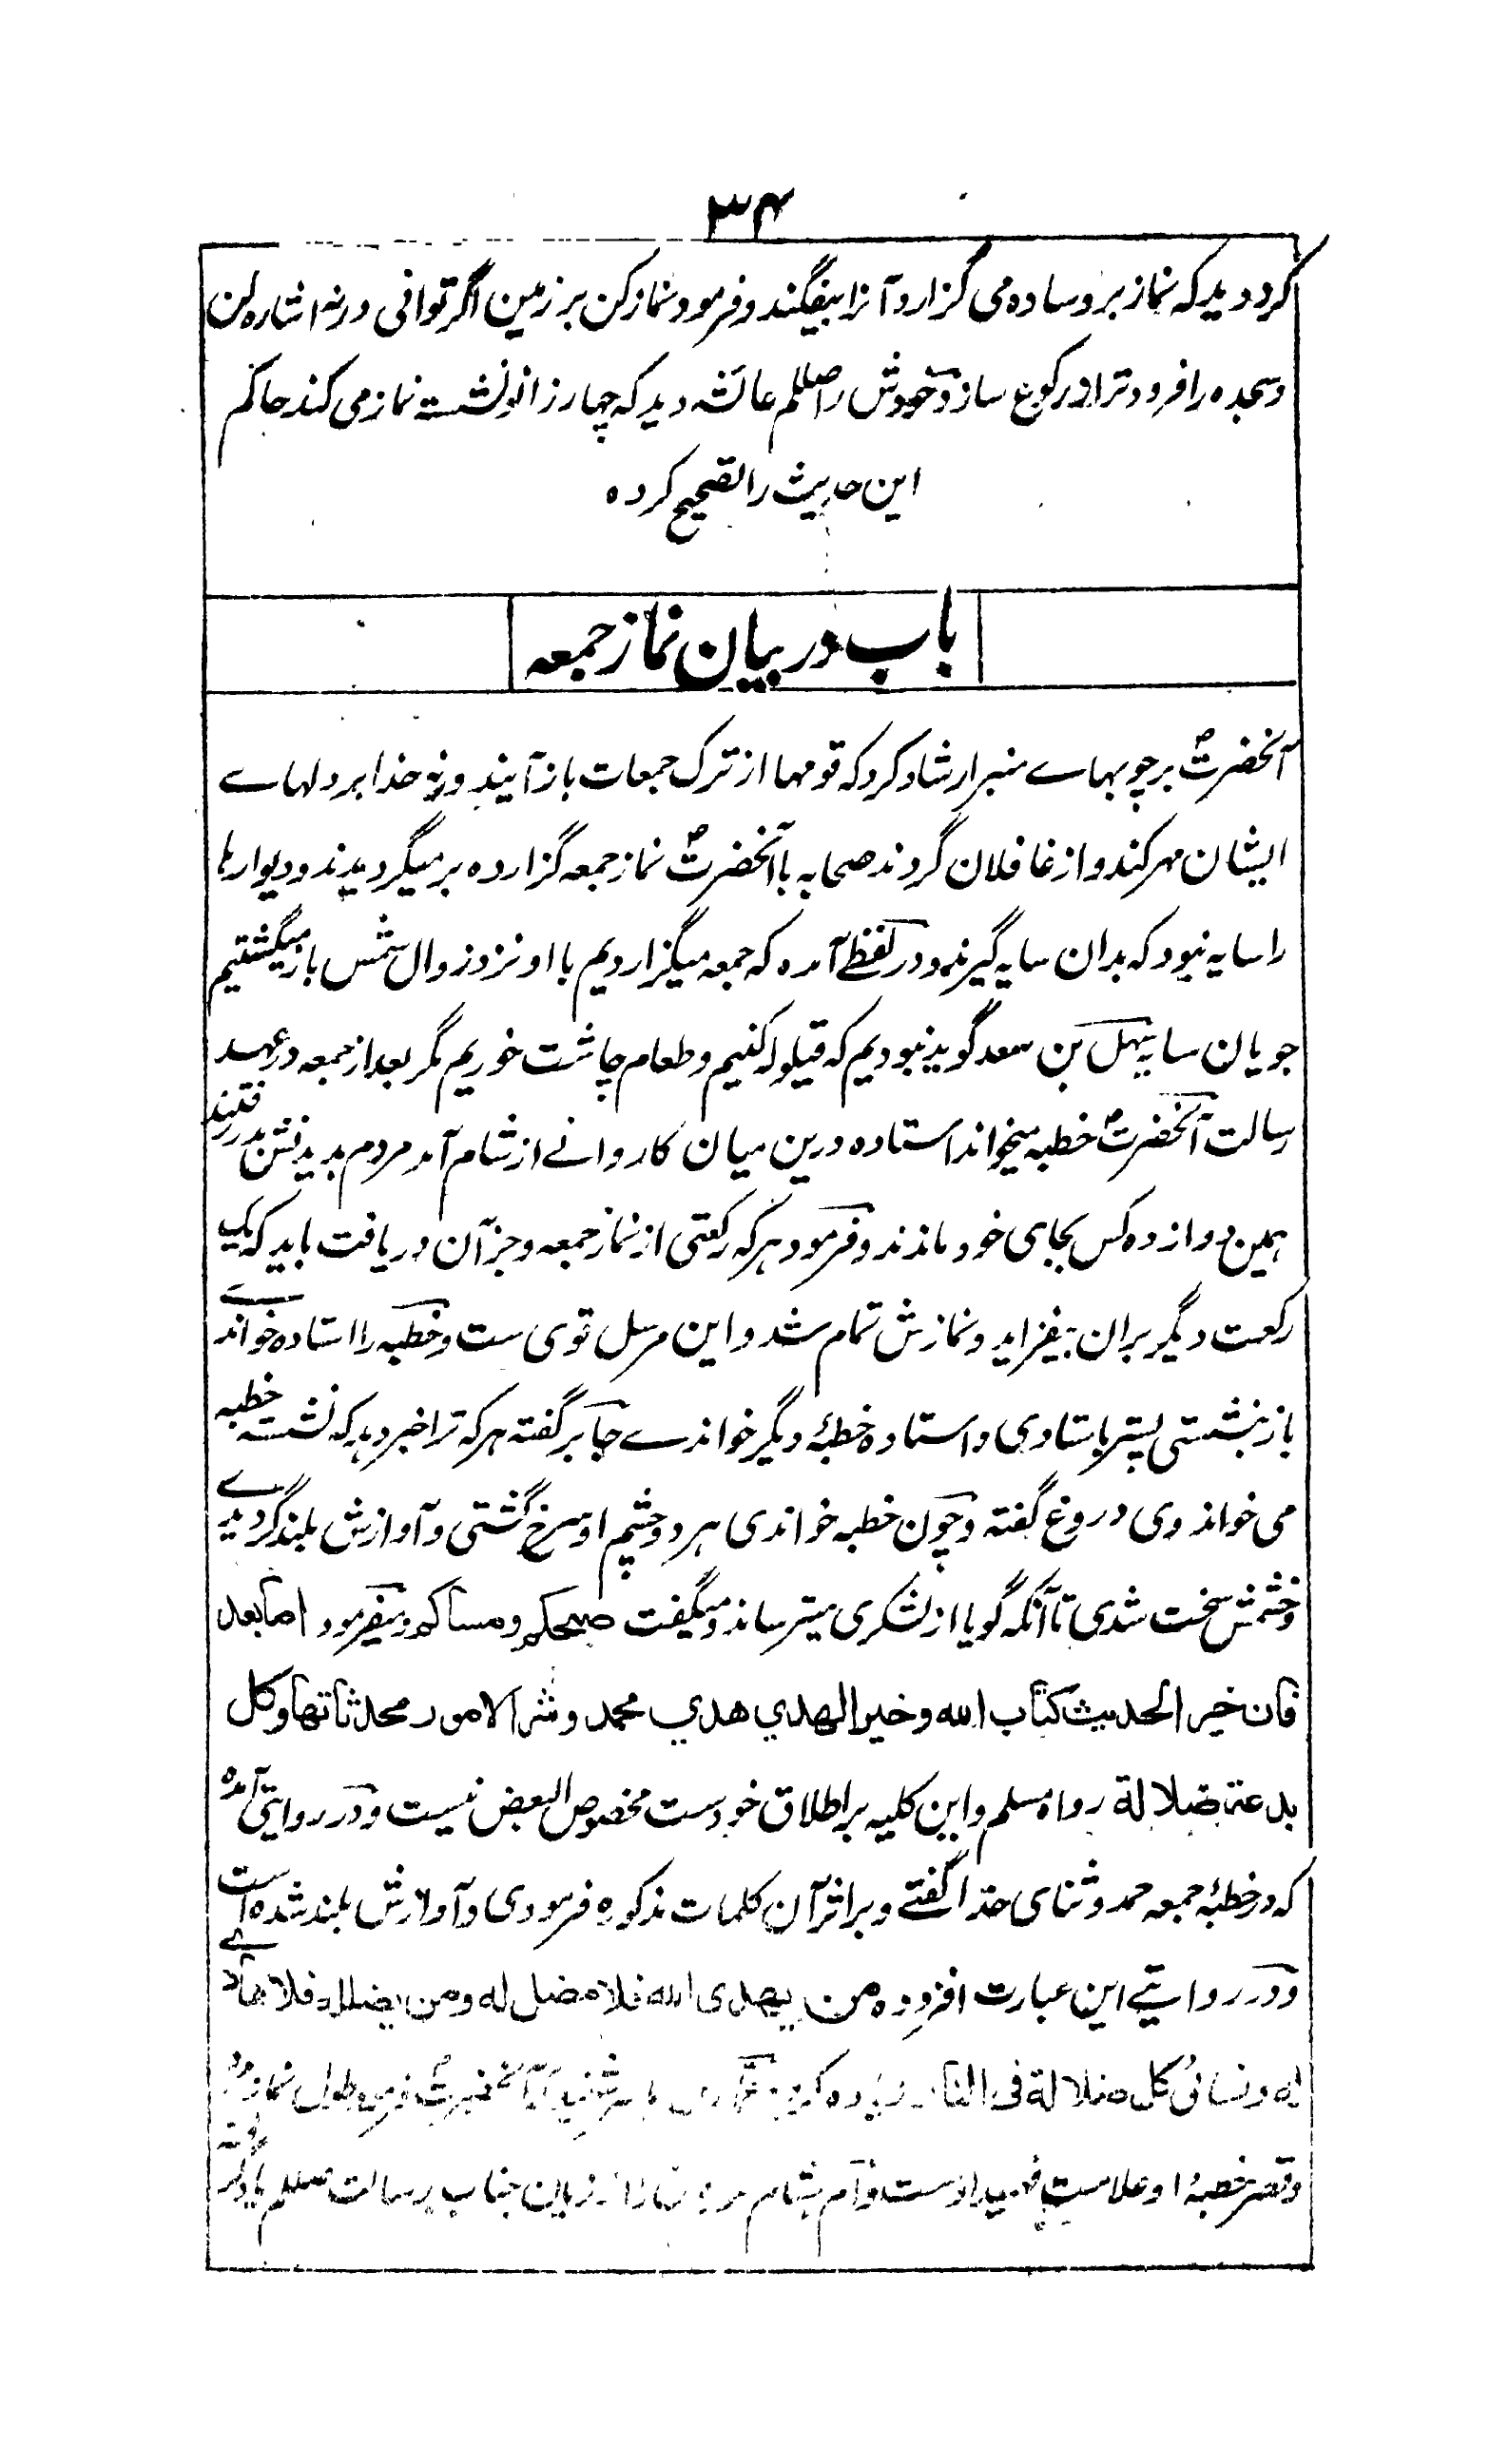 ۳۴
کرد دید که نماز بر وساده می گزارد آنرا بیفگند و فرمود نماز کن بر زمین اگر توانی ورنه اشاره کن
و سجده را فرودتر از رکوع ساز و خودش را صللم عائشه دید که چهار زانو نشسته نماز می کند حاکم
این حدیث را تصحیح کرده
باب در بیان نماز جمعه
آنحضرتؐ بر چوبهاے منبر ارشاد کرد که قومها از ترک جمعات باز آیند ورنه خدا بر دلهاے
ایشان مهر کند و از غافلان گردند صحابه با آنحضرتؐ نماز جمعه گزارده بر میگردیدند و دیوارها
را سایه نبود که بدان سایه گیرند و در لفظے آمده که جمعه میگزاردیم با او نزد زوال شمس باز میگشتیم
جویان سایه سهل بن سعد گوید نبودیم که قیلوله کنیم و طعام چاشت خوریم مگر بعد از جمعه در عهد
رسالت آنحضرتؐ خطبه میخواند استاده درین میان کاروانے از شام آمد مردم بدیدنش بدر رفتند
همین دوازده کس بجای خود ماندند و فرمود هر که رکعتی از نماز جمعه و جز آن دریافت باید که یک
رکعت دیگر بران بیفزاید و نمازش تمام شد و این مرسل قوی ست و خطبه را استاده خواندے
باز بنشستی پستر باستادی و استاده خطبهٔ دیگر خواندے جابر گفته هر که ترا خبر دهد که نشسته خطبه
می خواند وی دروغ گفته و چون خطبه خواندی هر دو چشم او سرخ گشتی و آوازش بلند گردیدے
و خشمش سخت شدی تا آنکه گویا از لشکری میترساند و میگفت صبحکم و مساکم و میفرمود اما بعد
فان خیر الحدیث کتاب الله و خیر الهدي هدي محمد و شر الامور محدثاتها و کل
بدعة ضلالة رواه مسلم و این کلیه بر اطلاق خودست مخصوص البعض نیست و در روایتی آمده
که در خطبهٔ جمعه حمد و ثنای خدا گفتے و بر اثر آن کلمات مذکوره فرمودی و آوازش بلند شده است
و در روایتے این عبارت افزوده من یهدی الله فلا مضل له و من یضلل فلا هادے
له و نسائی کل ضلالة فی النار زیاده کرده آنحضرتؐ طول نماز مرد
و قصر خطبهٔ او علامت ست و ام هشام از زبان جناب رسالت صللم یاد گرفته